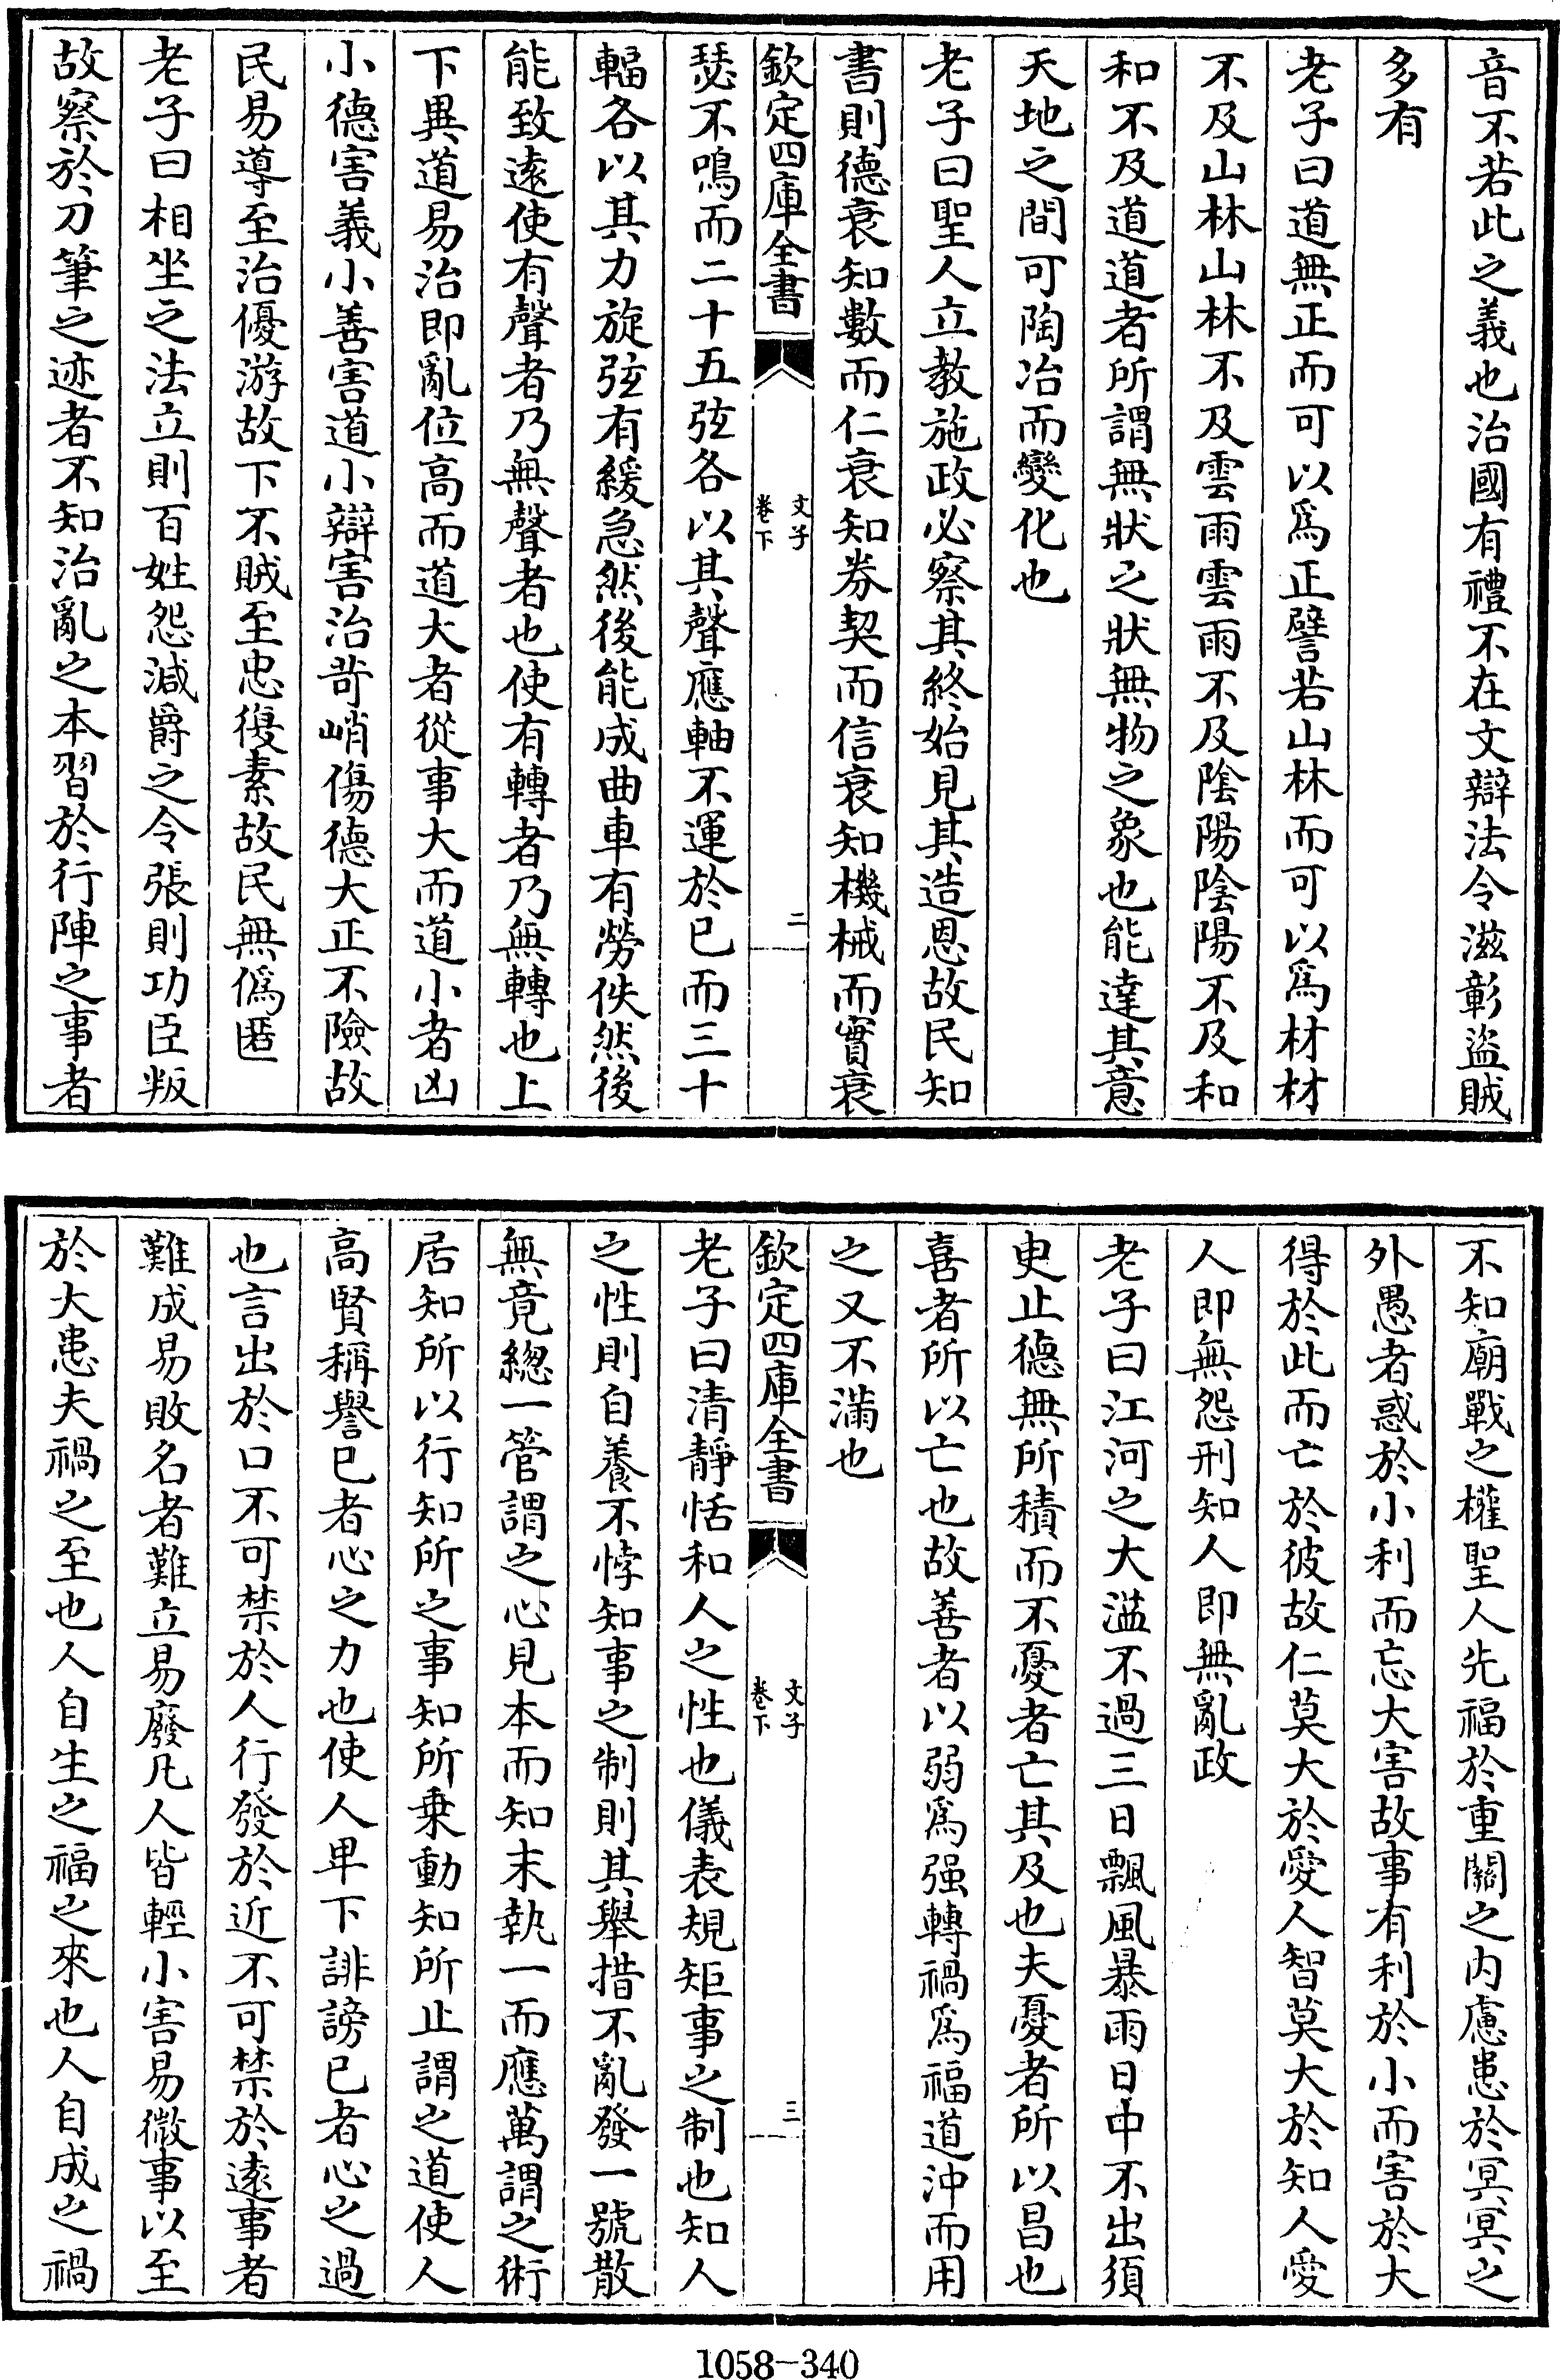 音不若此之義也治國有禮不在文辯法令滋彰盜賊
多有
老子曰道無正而可以爲正譬若山林而可以爲材材
不及山林山林不及雲雨雲雨不及陰陽陰陽不及和
和不及道道者所謂無狀之狀無物之象也能達其意
天地之間可陶冶而變化也
老子曰聖人立教施政必察其終始見其造恩故民知
書則德衰知數而仁衰知券契而信衰知機械而實衰
欽定四庫全書
文子
卷下
二
瑟不鳴而二十五弦各以其聲應軸不運於已而三十
輻各以其力旋弦有緩急然後能成曲車有勞佚然後
能致遠使有聲者乃無聲者也使有轉者乃無轉也上
下異道易治即亂位高而道大者從事大而道小者凶
小德害義小善害道小辯害治苛峭傷德大正不險故
民易導至治優游故下不賊至忠復素故民無僞匿
老子曰相坐之法立則百姓怨減爵之令張則功臣叛
故察於刀筆之迹者不知治亂之本習於行陣之事者
不知廟戰之權聖人先福於重關之内慮患於冥冥之
外愚者惑於小利而忘大害故事有利於小而害於大
得於此而亡於彼故仁莫大於愛人智莫大於知人愛
人即無怨刑知人即無亂政
老子曰江河之大溢不過三日飄風暴雨日中不出須
史止德無所積而不憂者亡其及也夫憂者所以昌也
喜者所以亡也故善者以弱爲强轉禍爲福道沖而用
之又不滿也
欽定四庫全書
文子
卷下
三
老子曰清靜恬和人之性也儀表規矩事之制也知人
之性則自養不悖知事之制則其舉措不亂發一號散
無竟總一管謂之心見本而知末執一而應萬謂之術
居知所以行知所之事知所乗動知所止謂之道使人
高賢稱譽已者心之力也使人卑下誹謗已者心之過
也言出於口不可禁於人行發於近不可禁於遠事者
難成易敗名者難立易廢凡人皆輕小害易微事以至
於大患夫禍之至也人自生之福之來也人自成之禍
1058-340